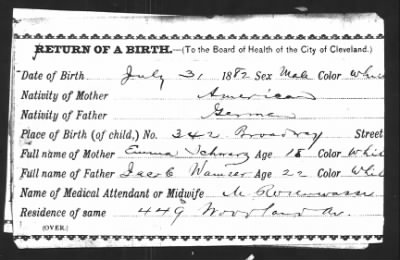 RETURN OF A BIRTH.—(To the Board of Health of the City of Cleveland.)
Date of Birth July 31 1882 Sex Male Color White
Nativity of Mother American
Nativity of Father German
Place of Birth (of child,) No. 342 Broadway Street
Full name of Mother Emma Schwarz Age 18 Color White
Full name of Father Jacob Age 22 Color White
Name of Medical Attendant or Midwife M Rosenwasser
Residence of same 449 Woodland Av.
(OVER.)